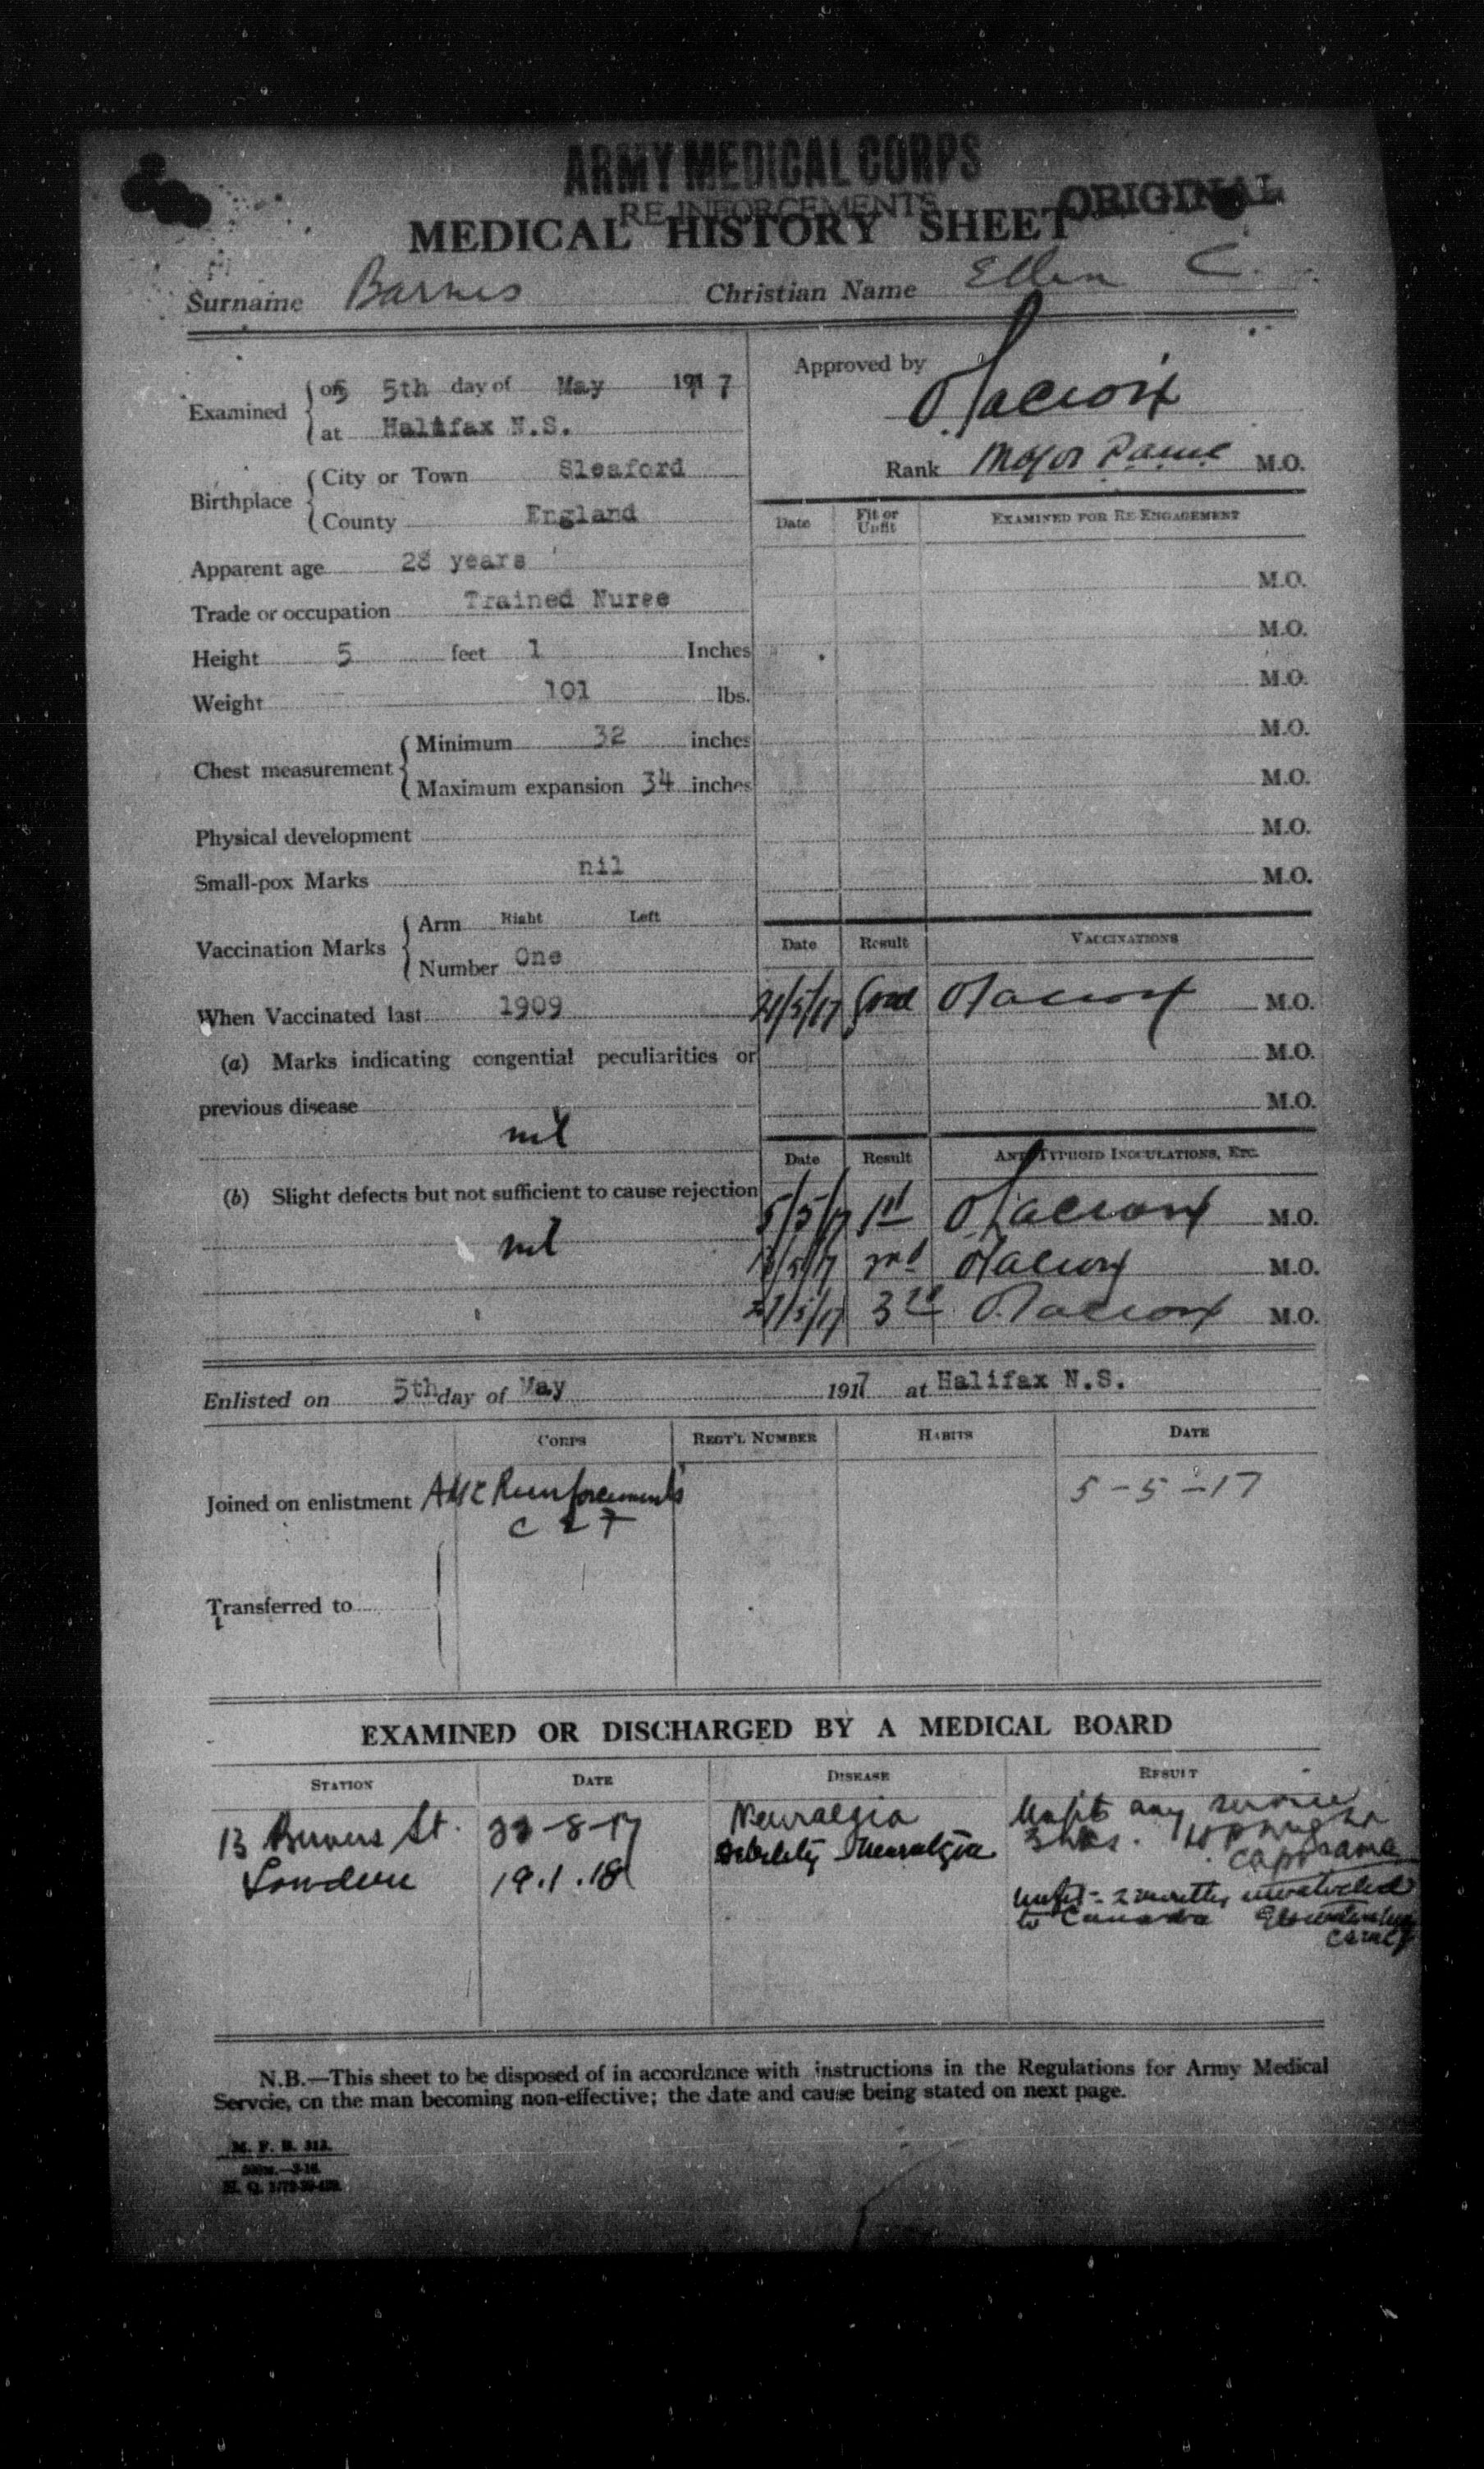 ARMY MEDICAL CORPS
RE-INFORCEMENTS
ORIGINAL
MEDICAL HISTORY SHEET
Surname Barnes Christian Name Ellen C.
Examined on 5th day of May 1917
at Halifax N.S.
Approved by
Rank Major M.O.
Birthplace City or Town Sleaford
County England
Date Fit or Unfit EXAMINED FOR RE-ENGAGEMENT
Apparent age 28 years
M.O.
Trade or occupation Trained Nurse
M.O.
Height 5 feet 1 Inches
M.O.
Weight 101 lbs.
M.O.
Chest measurement Minimum 32 inches
M.O.
Maximum expansion 34 inches
Physical development
M.O.
Small-pox Marks nil
M.O.
Vaccination Marks Arm Right Left
Number One
Date Result VACCINATIONS
When Vaccinated last 1909
21/5/17 Good M.O.
(a) Marks indicating congential peculiarities or
M.O.
previous disease
M.O.
nil
Date Result ANTI-TYPHOID INOCULATIONS, ETC.
(b) Slight defects but not sufficient to cause rejection
5/5/17 1st M.O.
nil
2nd M.O.
3rd M.O.
Enlisted on 5th day of May 1917 at Halifax N.S.
CORPS REGT'L NUMBER HABITS DATE
Joined on enlistment AMC Reinforcements 5-5-17
Transferred to
EXAMINED OR DISCHARGED BY A MEDICAL BOARD
STATION DATE DISEASE RESULT
13 Berners St. -8-17 Neuralgia Unfit any service
London 19.1.18 Debility Neuralgia 3 wks.
Unfit - 2 months invalided
to Canada
N.B.—This sheet to be disposed of in accordance with instructions in the Regulations for Army Medical
Servcie, on the man becoming non-effective; the date and cause being stated on next page.
M. F. B. 313.